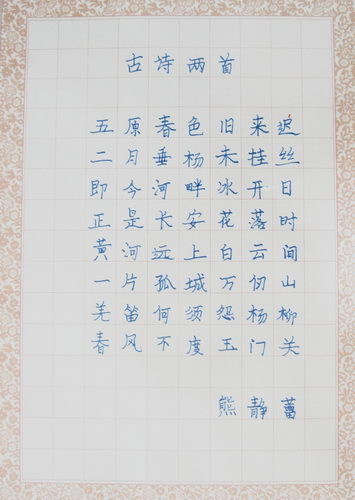 古诗两首
五原春色旧来迟
二月垂杨未挂丝
即今河畔冰开日
正是长安花落时
黄河远上白云间
一片孤城万仞山
羌笛何须怨杨柳
春风不度玉门关
熊静蕾